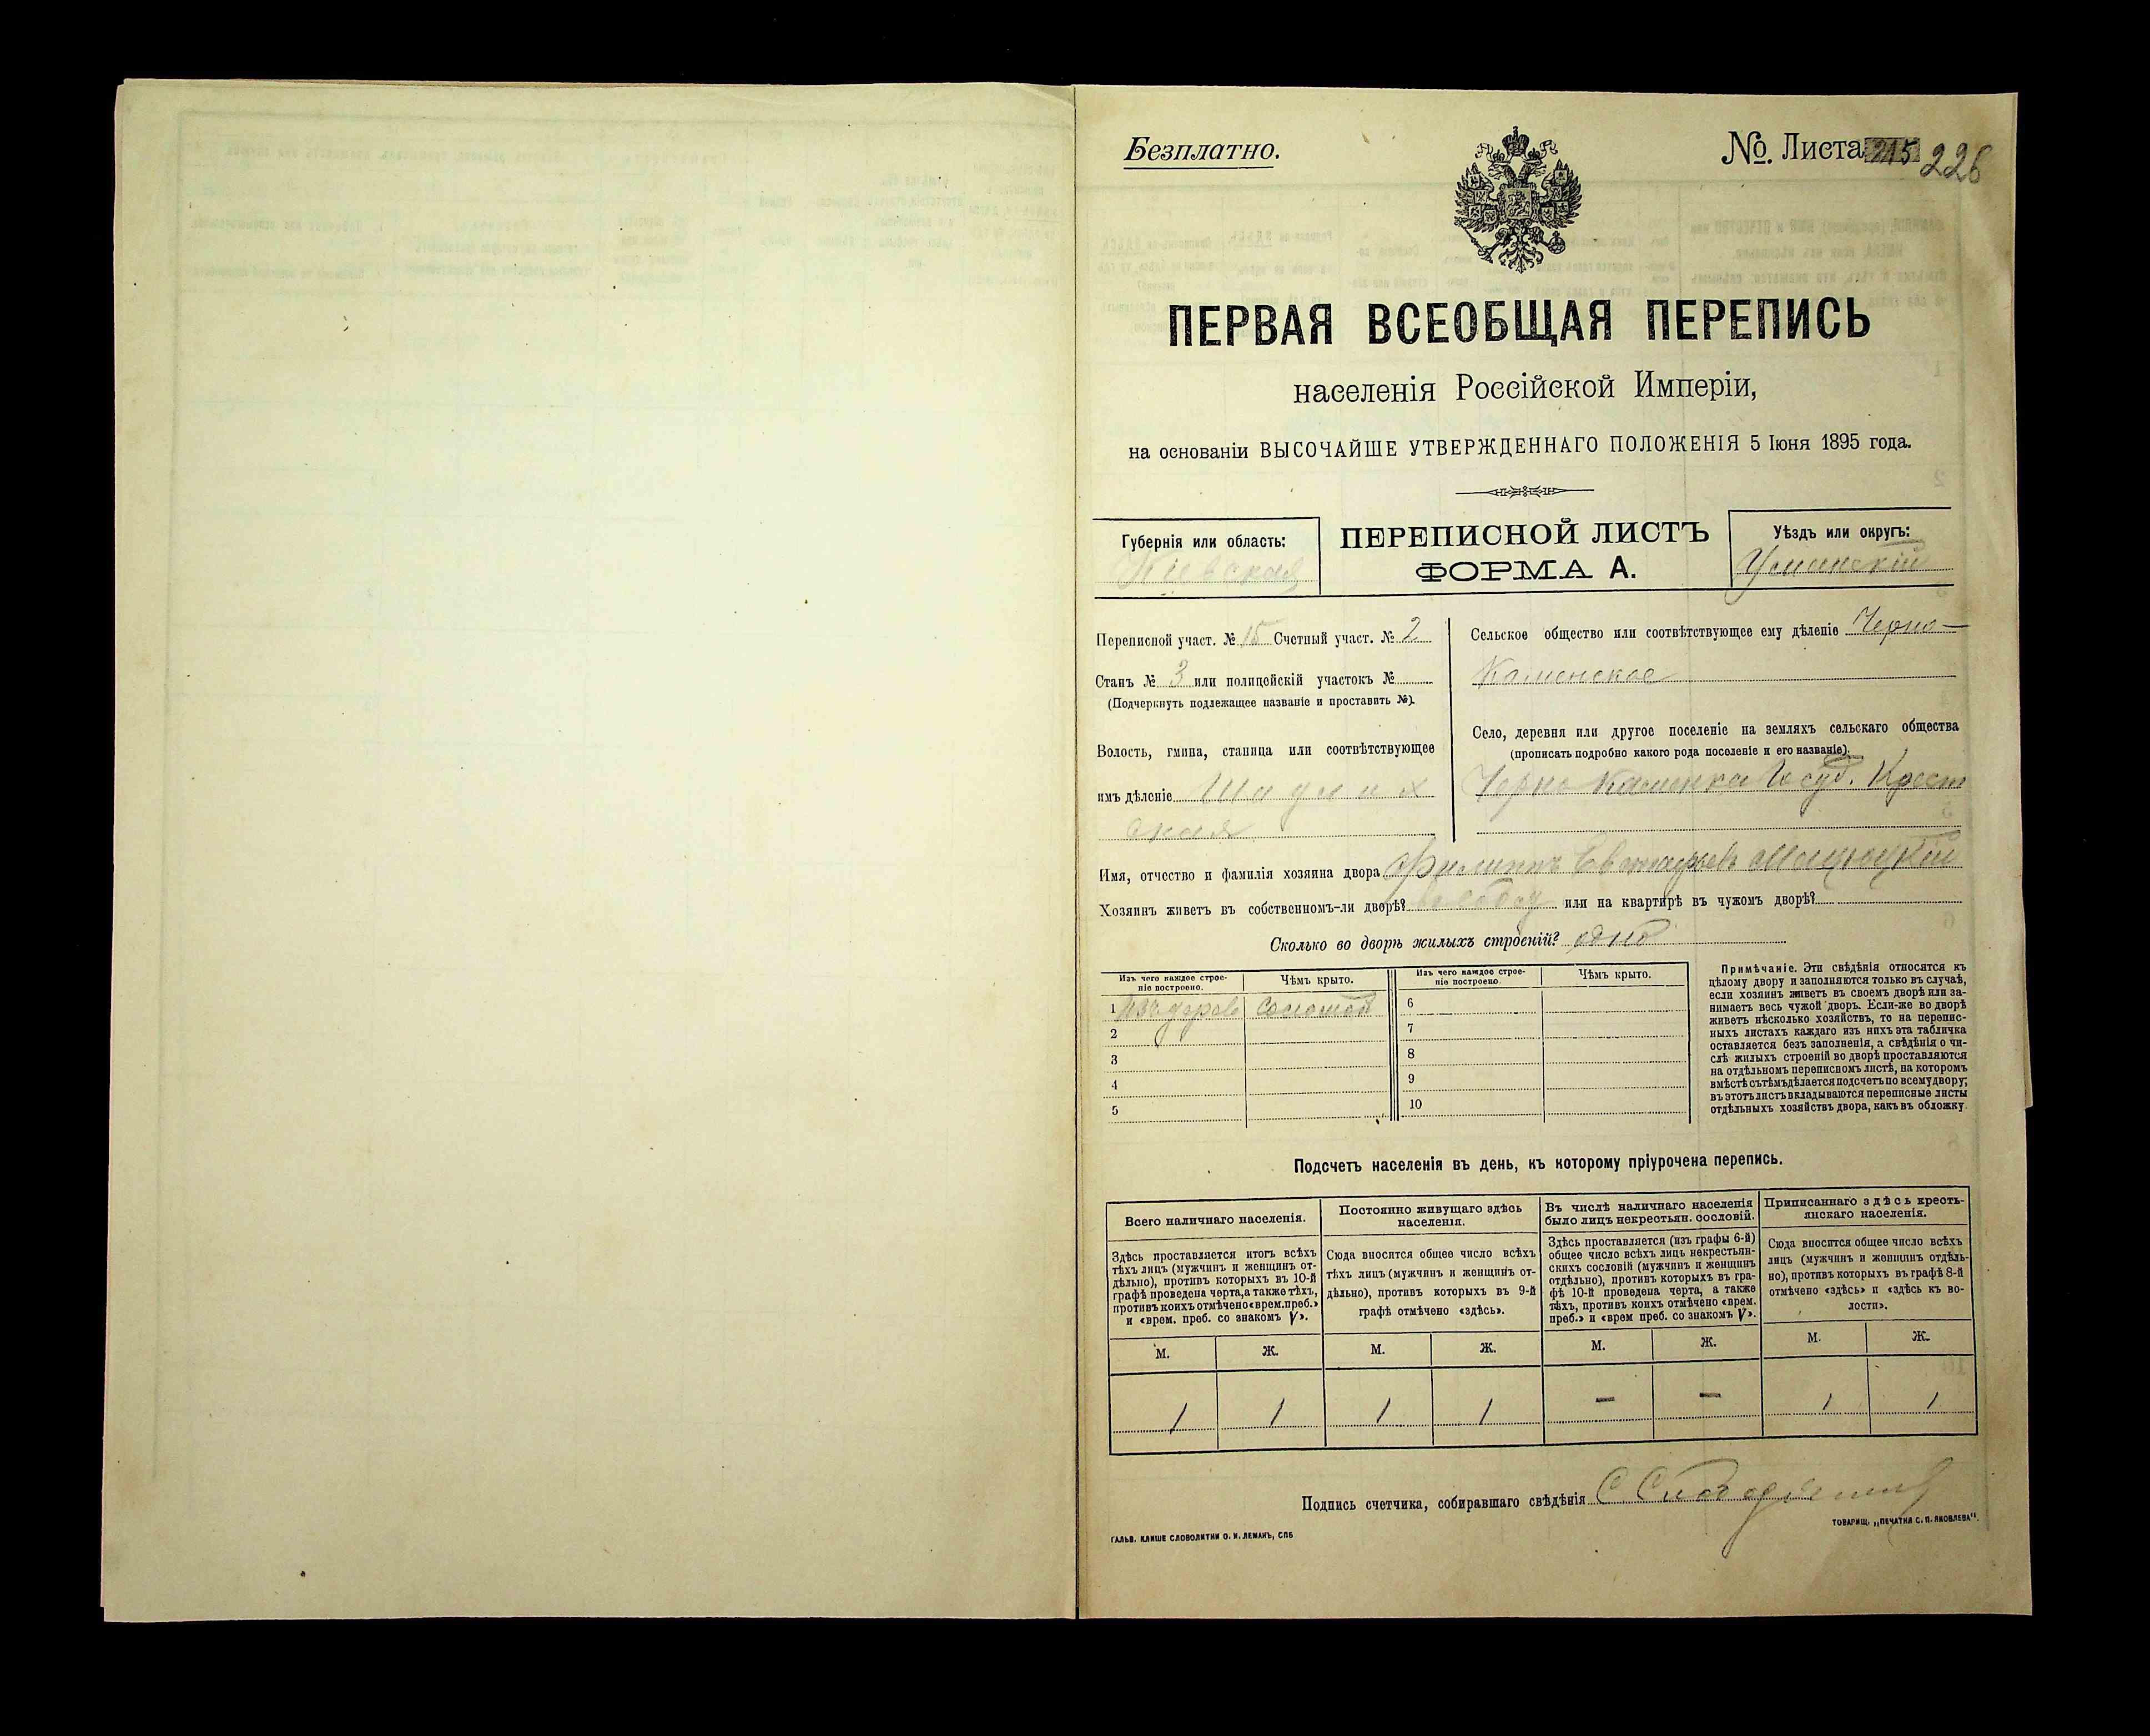 Безплатно.
№. Листа 215 226
ПЕРВАЯ ВСЕОБЩАЯ ПЕРЕПИСЬ
населенія Россійской Имперіи,
на основаніи ВЫСОЧАЙШЕ УТВЕРЖДЕННАГО ПОЛОЖЕНІЯ 5 Іюня 1895 года.
Губернія или область:
Кіевская
ПЕРЕПИСНОЙ ЛИСТЪ
ФОРМА А.
Уѣздъ или округъ:
Уманскій
Переписной участ. № 15 Счетный участ. № 2
Станъ № 3 или полицейскій участокъ №
(Подчеркнуть подлежащее названіе и проставить №).
Волость, гмина, станица или соотвѣтствующее
имъ дѣленіе
ская
Сельское общество или соотвѣтствующее ему дѣленіе Черно-
Каменское
Село, деревня или другое поселеніе на земляхъ сельскаго общества
(прописать подробно какого рода поселеніе и его названіе).
Черно Каменка Госуд. Крест
Имя, отчество и фамилія хозяина двора Филиппъ
Хозяинъ живетъ въ собственномъ-ли дворѣ? или на квартирѣ въ чужомъ дворѣ?
Сколько во дворѣ жилыхъ строеній? одно
Изъ чего каждое строе-
ніе построено.
Чѣмъ крыто.
Изъ чего каждое строе-
ніе построено.
Чѣмъ крыто.
1 изъ дерева соломой 6
2 7
3 8
4 9
5 10
Примѣчаніе. Эти свѣдѣнія относятся къ
цѣлому двору и заполняются только въ случаѣ,
если хозяинъ живетъ въ своемъ дворѣ или за-
нимаетъ весь чужой дворъ. Если-же во дворѣ
живетъ нѣсколько хозяйствъ, то на перепис-
ныхъ листахъ каждаго изъ нихъ эта табличка
оставляется безъ заполненія, а свѣдѣнія о чи-
слѣ жилыхъ строеній во дворѣ проставляются
на отдѣльномъ переписномъ листѣ, на которомъ
вмѣстѣ съ тѣмъ дѣлается подсчетъ по всему двору;
въ этотъ листъ вкладываются переписные листы
отдѣльныхъ хозяйствъ двора, какъ въ обложку.
Подсчетъ населенія въ день, къ которому пріурочена перепись.
Всего наличнаго населенія.
Здѣсь проставляется итогъ всѣхъ
тѣхъ лицъ (мужчинъ и женщинъ от-
дѣльно), противъ которыхъ въ 10-й
графѣ проведена черта, а также тѣхъ,
противъ коихъ отмѣчено «врем. преб.»
и «врем. преб. со знакомъ V».
Постоянно живущаго здѣсь
населенія.
Сюда вносится общее число всѣхъ
тѣхъ лицъ (мужчинъ и женщинъ от-
дѣльно), противъ которыхъ въ 9-й
графѣ отмѣчено «здѣсь».
Въ числѣ наличнаго населенія
было лицъ некрестьян. сословій.
Здѣсь проставляется (изъ графы 6-й)
общее число всѣхъ лицъ некрестьян-
скихъ сословій (мужчинъ и женщинъ
отдѣльно), противъ которыхъ въ гра-
фѣ 10-й проведена черта, а также
тѣхъ, противъ коихъ отмѣчено «врем.
преб.» и «врем преб. со знакомъ V».
Приписаннаго здѣсь кресть-
янскаго населенія.
Сюда вносится общее число всѣхъ
лицъ (мужчинъ и женщинъ отдѣль-
но), противъ которыхъ въ графѣ 8-й
отмѣчено «здѣсь» и «здѣсь къ во-
лости».
М. Ж. М. Ж. М. Ж. М. Ж.
1 1 1 1 — — 1 1
Подпись счетчика, собиравшаго свѣдѣнія
ГАЛЬВ. КЛИШЕ СЛОВОЛИТНИ О. И. ЛЕМАНЪ, СПБ
ТОВАРИЩ. „ПЕЧАТНЯ С. П. ЯКОВЛЕВА".